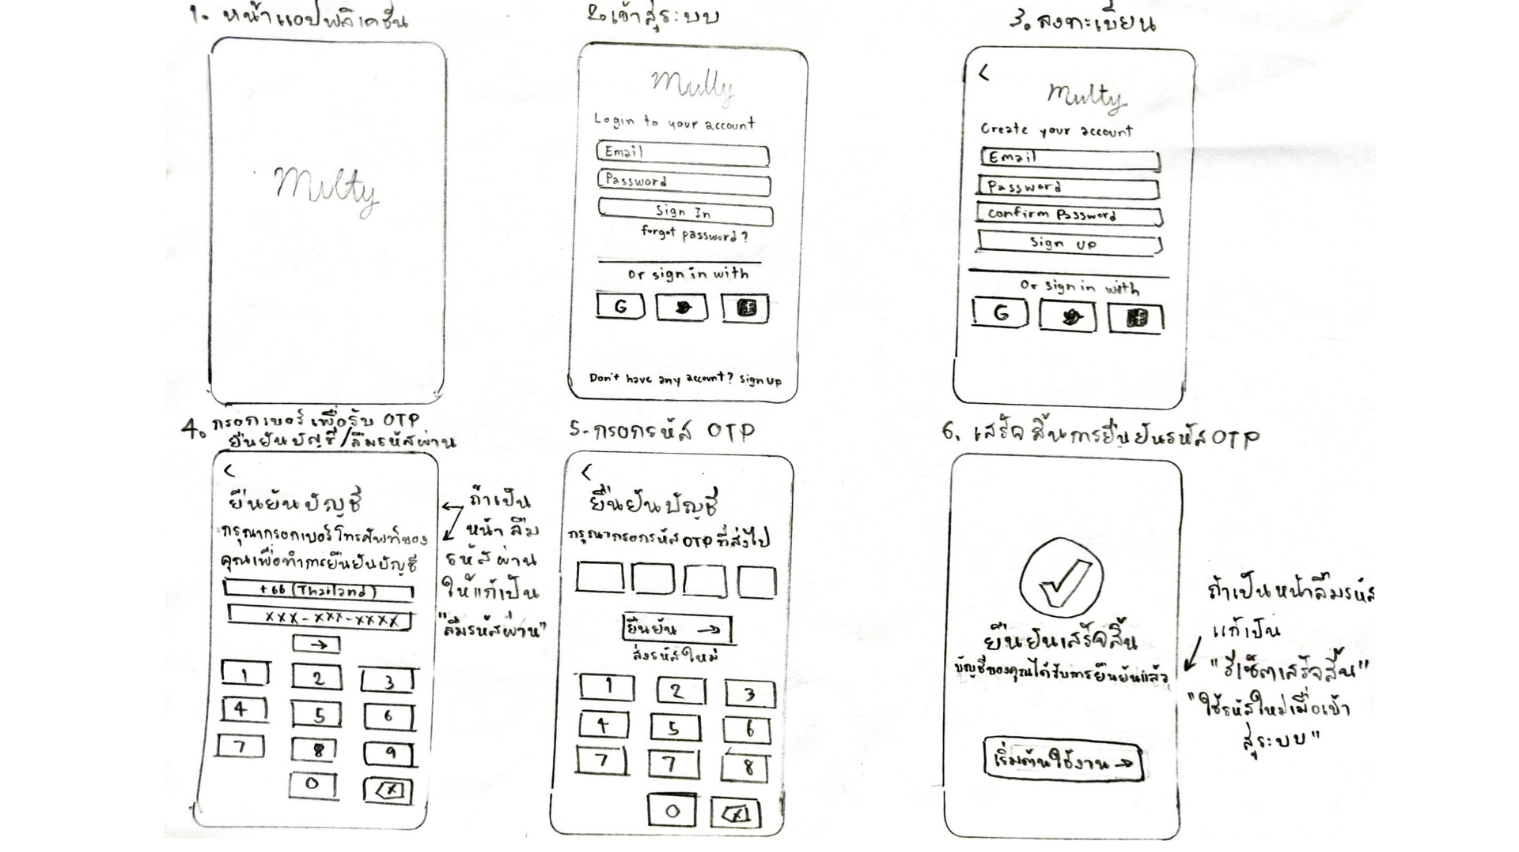 1. หน้าแอปพลิเคชัน
Multy
2. เข้าสู่ระบบ
Multy
Login to your account
Email
Password
Sign In
forgot password?
Or sign in with
G
Don't have any account? Sign Up
3. ลงทะเบียน
<
Multy
Create your account
Email
Password
Confirm Password
Sign UP
Or sign in with
G
4. กรอกเบอร์เพื่อรับ OTP
ยืนยันบัญชี/ลืมรหัสผ่าน
<
ยืนยันบัญชี
กรุณากรอกเบอร์โทรศัพท์ของ
คุณเพื่อทำการยืนยันบัญชี
+66 (Thailand)
xxx-xxx-xxxx
→
1 2 3
4 5 6
7 8 9
0 X
ถ้าเป็น
หน้าลืม
รหัสผ่าน
ให้แก้เป็น
"ลืมรหัสผ่าน"
5. กรอกรหัส OTP
<
ยืนยันบัญชี
กรุณากรอกรหัส OTP ที่ส่งไป
ยืนยัน →
ส่งรหัสใหม่
1 2 3
4 5 6
7 7 8
0 X
6. เสร็จสิ้นการยืนยันรหัส OTP
ยืนยันเสร็จสิ้น
บัญชีของคุณได้รับการยืนยันแล้ว
เริ่มต้นใช้งาน →
ถ้าเป็นหน้าลืมรหัส
แก้เป็น
"รีเซ็ตเสร็จสิ้น"
"ใช้รหัสใหม่เมื่อเข้า
สู่ระบบ"